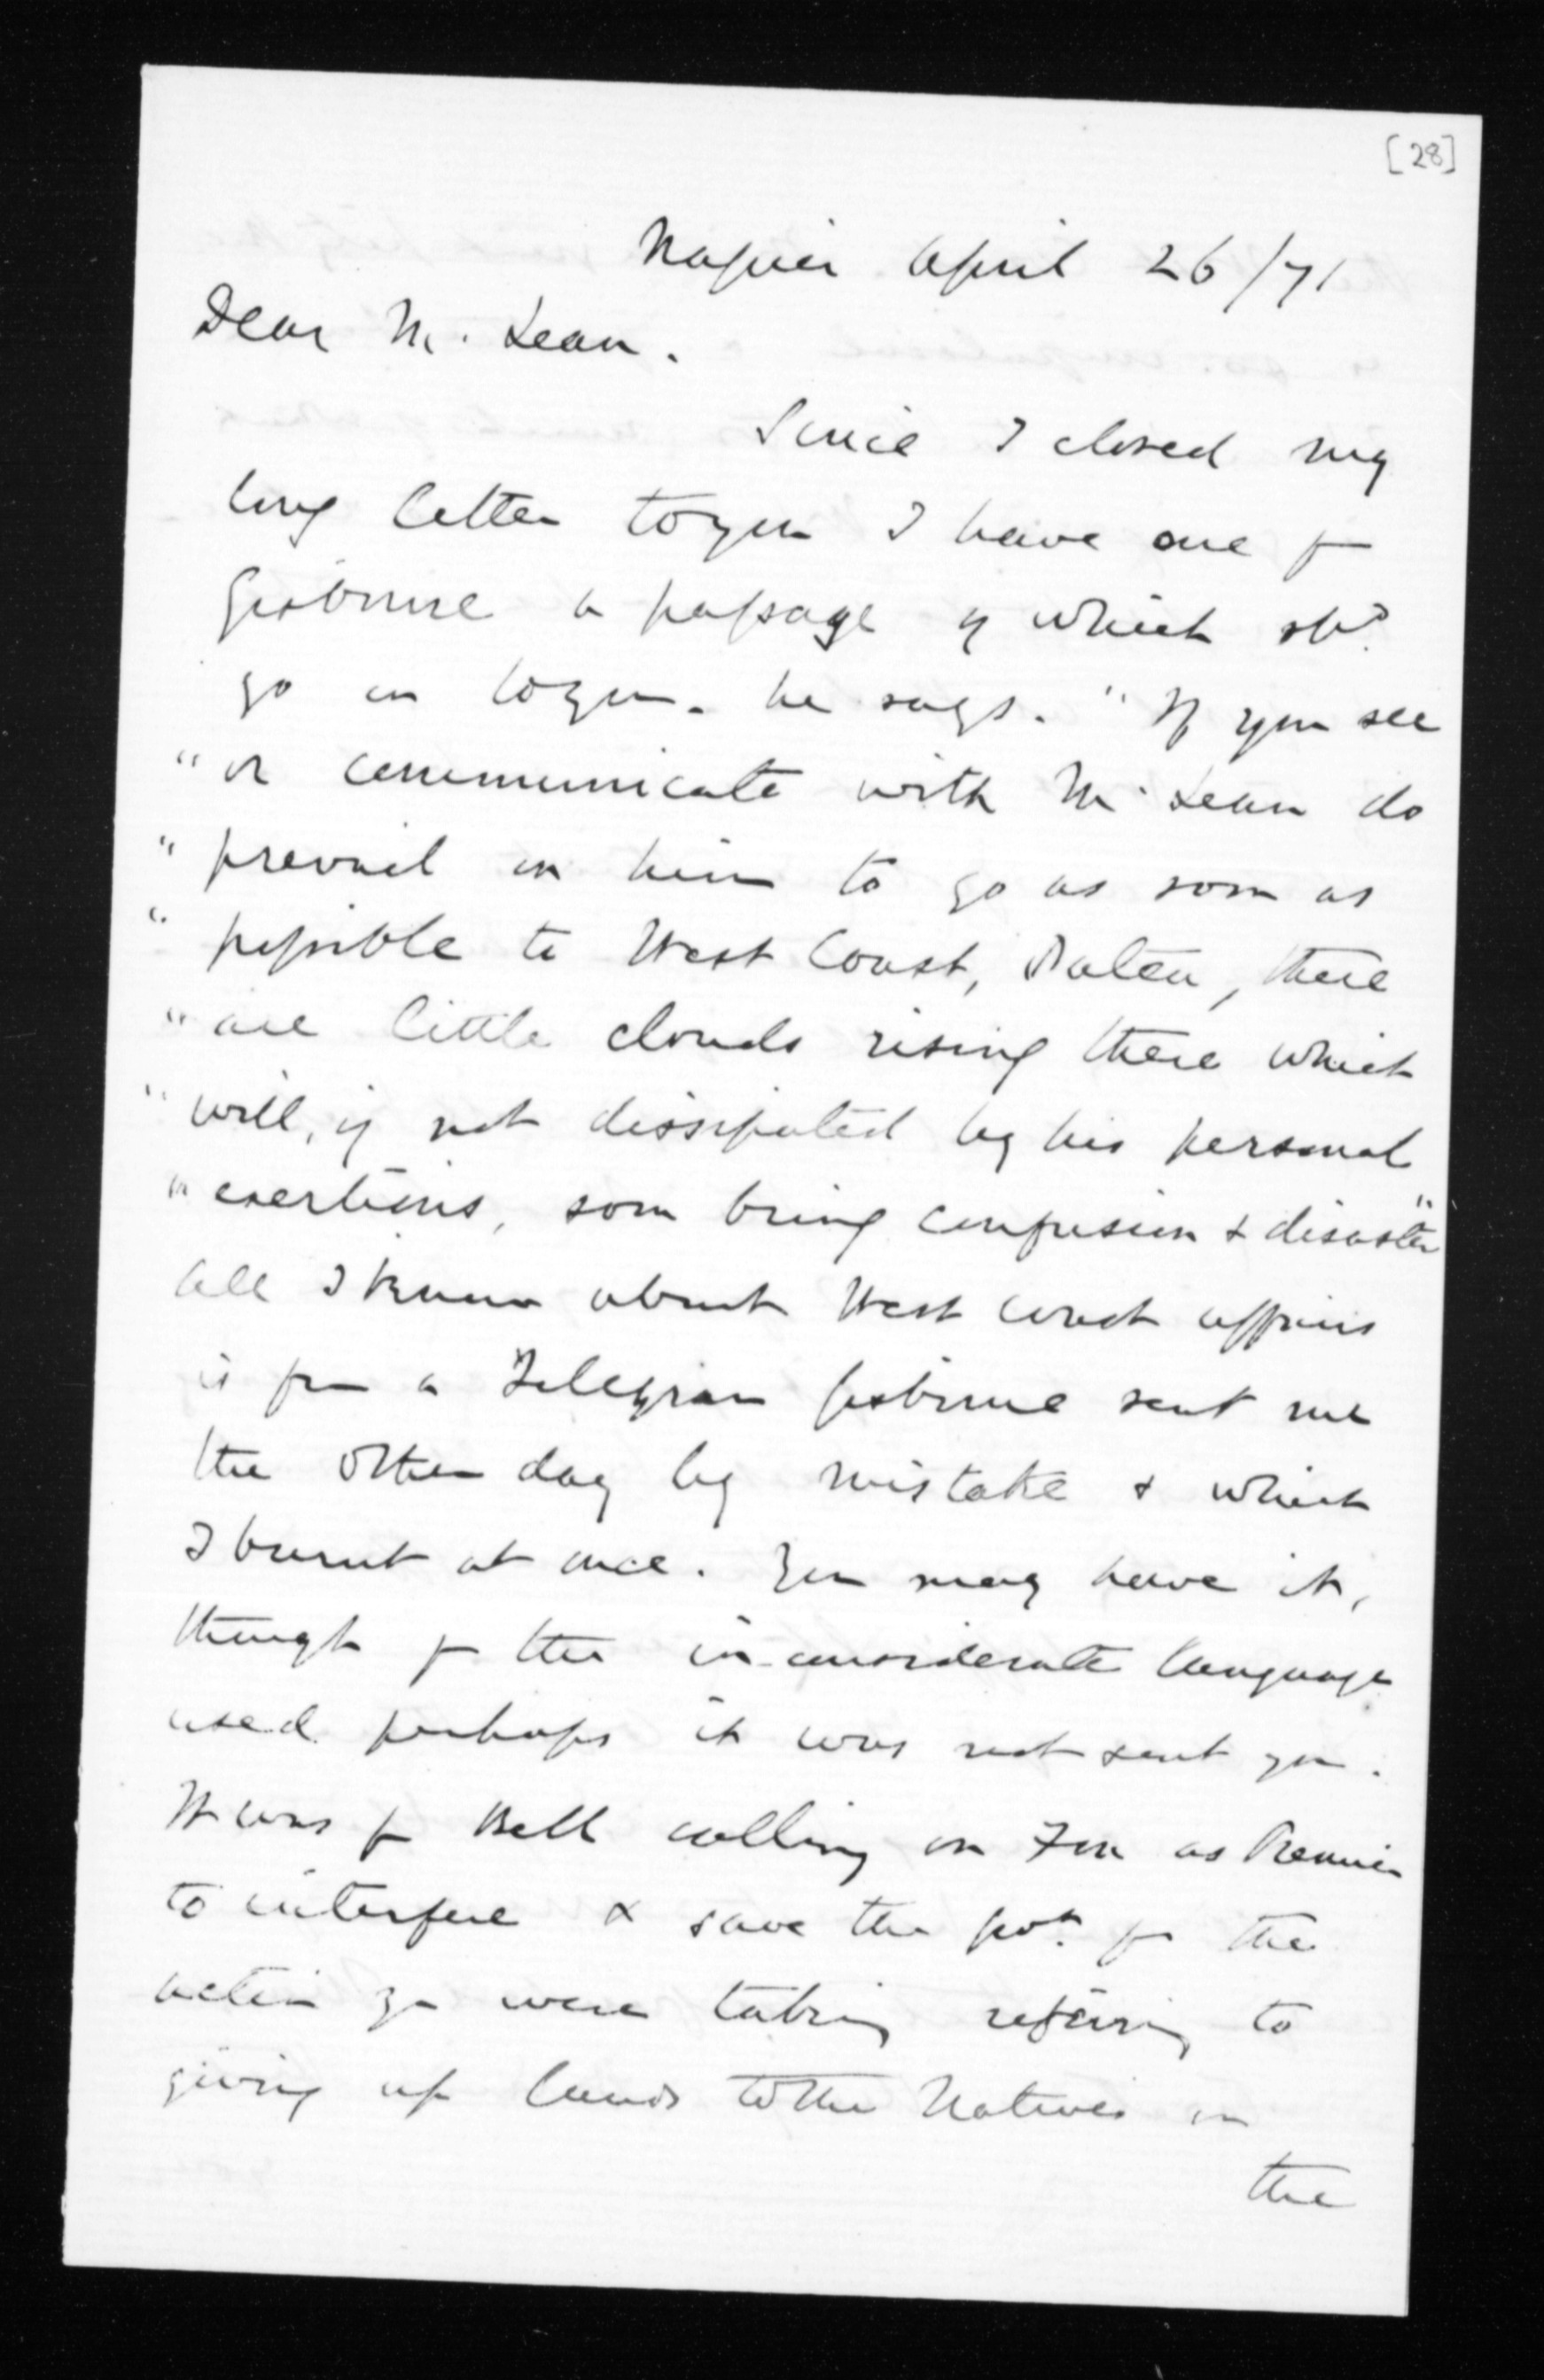 [28]
Napier April 26/71
Dear McLean.
Since I closed my
long letter to you I have one fm
Gisborne a passage of which shd
go on to you. he says. "If you see
"or communicate with McLean do
"prevail on him to go as soon as
"possible to West Coast, Patea, there
"are little clouds rising there which
"will, if not dissipated by his personal
"exertions, soon bring confusion & disaster"
All I know about West Coast affairs
is fm a Telegram Gisborne sent me
the other day by mistake & which
I burnt at once. You may have it,
though fm the inconsiderate language
used perhaps it was not sent you.
It was fm Bell calling on Fox as Premier
to interfere & save the Govt fm the
action you were taking referring to
giving up lands to the Natives in
the